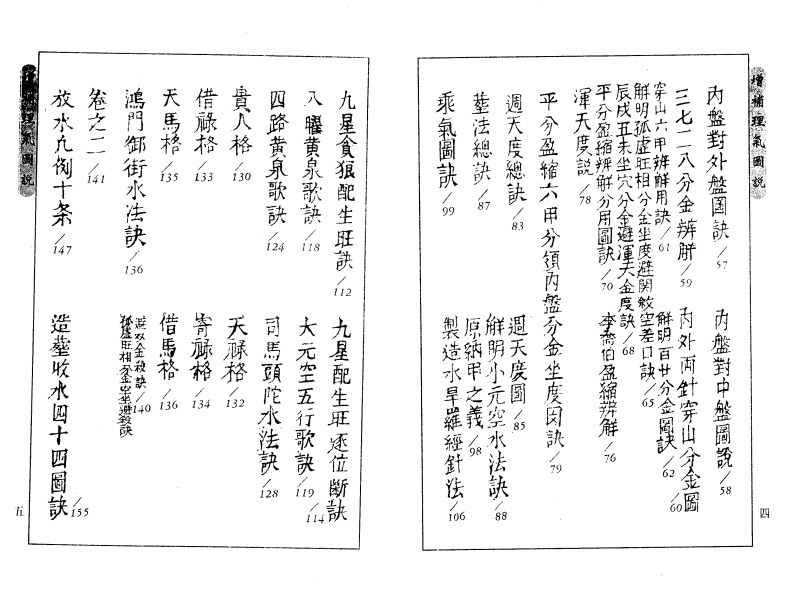 增補理氣圖說
內盤對外盤圖訣/57
內盤對中盤圖說/58
三七二八分金辨/59
內外両針穿山分金圖/60
穿山六甲辨解用訣/61
解明百廿分金圖訣/62
解明孤虛旺相分金坐度避関敏空差口訣/65
辰戌丑未坐穴分金避渾天金度訣/68
平分盈縮辨解分用圖訣/70
李喬伯盈縮辨解/76
渾天度説/78
平分盈縮六甲分領內盤分金坐度図訣/79
週天度總訣/83
週天度圖/85
塟法總訣/87
解明小元空水法訣/88
原納甲之義/98
乘氣圖訣/99
製造水旱羅經針法/106
四
九星貪狼配生旺訣/112
九星配生旺逐位斷訣/114
八曜黃泉歌訣/118
大元空五行歌訣/119
四路黄泉歌訣/124
司馬頭陀水法訣/128
貴人格/130
天祿格/132
借祿格/133
寄祿格/134
天馬格/135
借馬格/136
鴻門御街水法訣/136
避双金殺訣/140
孤虛旺相分金坐避殺訣
卷之二/141
放水九例十条/147
造塟收水四十四圖訣/155
五
理氣圖說